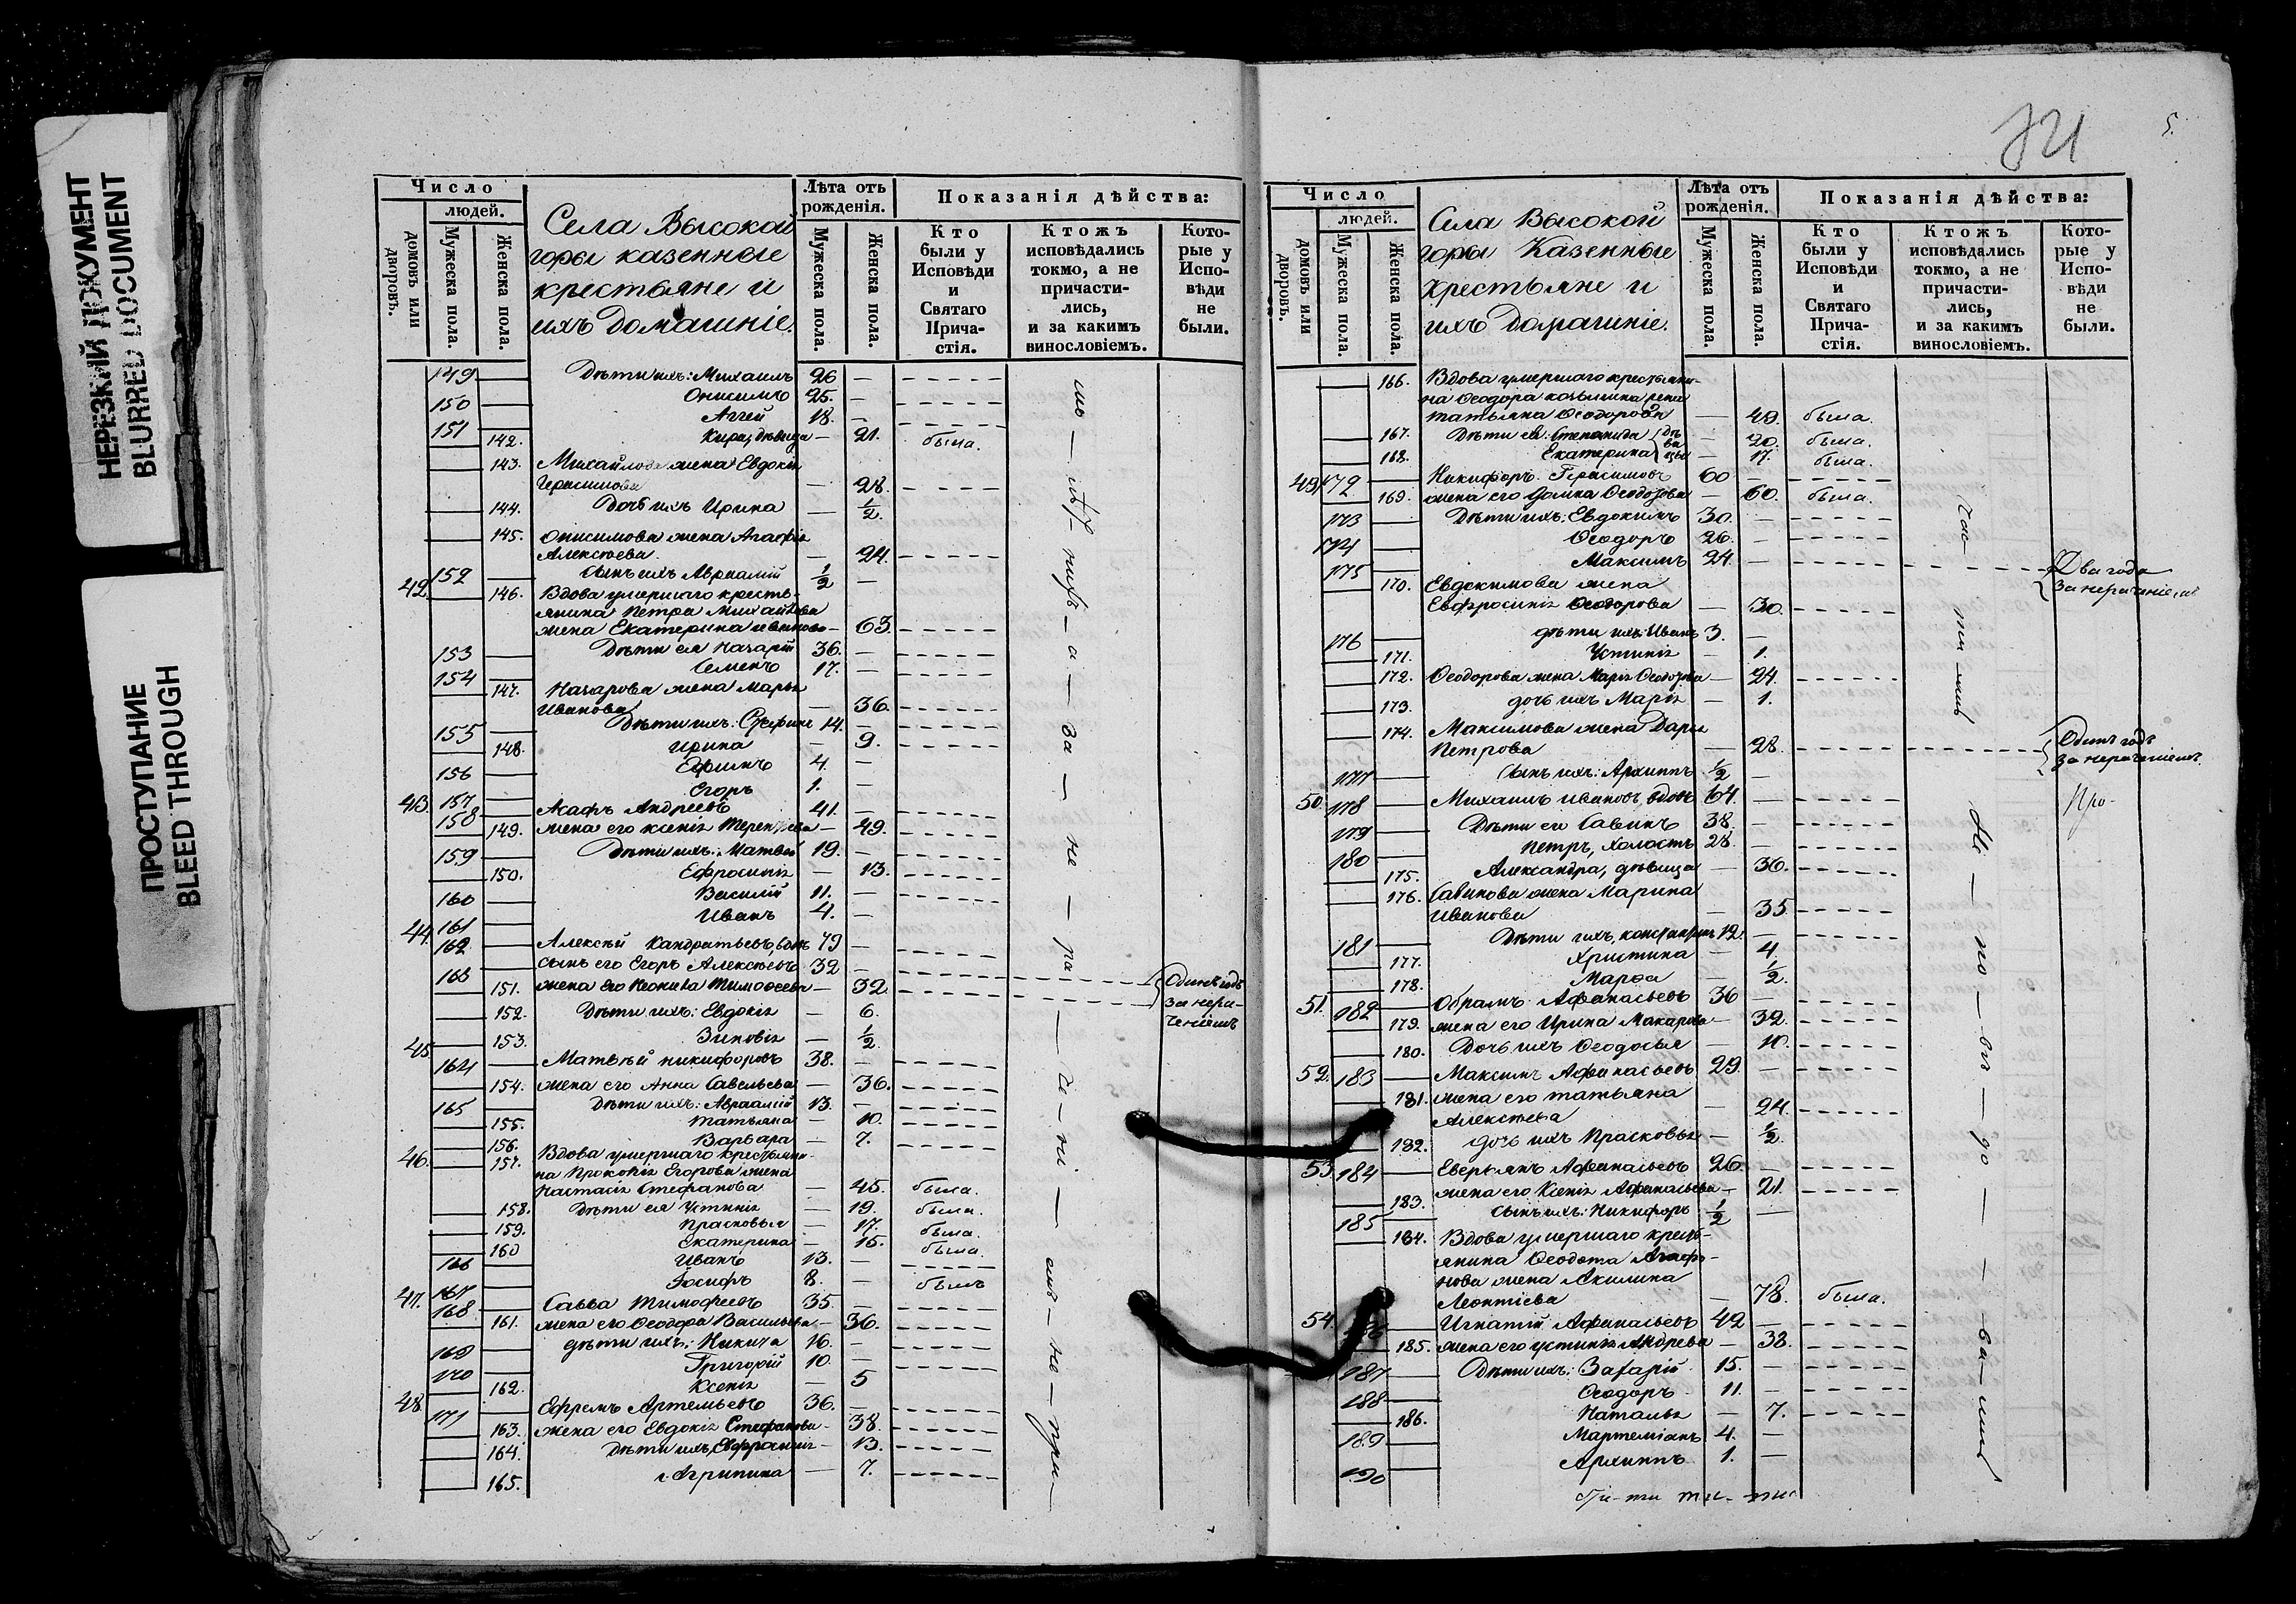 НЕРЕЗКИЙ ДОКУМЕНТ
BLURRED DOCUMENT
ПРОСТУПАНИЕ
BLEED THROUGH
Число
людей.
домовъ или дворовъ.
Мужеска пола.
Женска пола.
Села Высокой
горы казенные
крестьяне и
ихъ домашніе.
Лѣта отъ рожденія.
Мужеска пола.
Женска пола.
Показанія дѣйства:
Кто были у Исповѣди и Святаго Прича-стія.
Ктожъ исповѣдались токмо, а не причасти-лись, и за какимъ винословіемъ.
Кото-рые у Испо-вѣди не были.
149 Дѣти ихъ: Михаилъ 26 —
150 Онисимъ 25. —
151 Аггей 18. —
142. Кира, дѣвица — 21. была.
143. Михайлова жена Евдокія
Герасимова — 28.
144. Дочь ихъ Ирина — ½.
145. Онисимова жена Агафія
Алексѣева — 24.
152 Сынъ ихъ Авраамій ½ —
42. 146. Вдова умершаго кресть-
янина Петра Михайлова
жена Екатерина Иванова — 63.
153 Дѣти ея Назарій 36. —
154 Семенъ 17. —
147. Назарова жена Марья
Иванова — 36.
155 Дѣти ихъ: Стефанъ 14. —
148. Ирина — 9.
156 Ефимъ 4. —
157 Егоръ 1. —
43. 158 Асафъ Андреевъ 41. —
149. жена его Ксенія Терентьева — 49.
159 Дѣти ихъ: Матвей 19. —
150. Ефросинія — 13.
160 Василій 11. —
161 Иванъ 4. —
44. 162 Алексѣй Кандратьевъ, вдовъ 79 —
163 сынъ его Егоръ Алексѣевъ 32 —
151. жена его Неонила Тимофеева — 32
Одинъ годъ
за нера-
ченіемъ
152. Дѣти ихъ: Евдокія — 6.
153. Зиновія — ½.
45. 164 Матвѣй Никифоровъ 38. —
154. жена его Анна Савельева — 36.
165 Дѣти ихъ: Авраамій 13. —
155. Татьяна — 10.
156. Варвара — 7.
46. 157. Вдова умершаго крестьяни-
на Прокопія Егорова жена
Настасія Стефанова — 45. была.
158. Дѣти ея Устинія — 19. была.
159. Прасковья — 17. была.
160 Екатерина — 15. была.
166 Иванъ 13. —
167 Іосифъ 8. — былъ
47. 168 Савва Тимофеевъ 35. —
161. жена его Ѳеодора Васильева — 36.
169 дѣти ихъ: Никита 16. —
170 Григорій 10. —
162. Ксенія — 5
48. 171 Ефремъ Артемьевъ 36. —
163. жена его Евдокія Стефанова — 38.
164. Дѣти ихъ, Евфросинія — 13.
165. Агрипина — 7.
за — не — ра — че — ні —
721
5.
Число
людей.
домовъ или дворовъ.
Мужеска пола.
Женска пола.
Села Высокой
горы Казенные
крестьяне и
ихъ домашніе.
Лѣта отъ рожденія.
Мужеска пола.
Женска пола.
Показанія дѣйства:
Кто были у Исповѣди и Святаго Прича-стія.
Ктожъ исповѣдались токмо, а не причасти-лись, и за какимъ винословіемъ.
Кото-рые у Испо-вѣди не были.
166. Вдова умершаго крестьяни-
на Ѳеодора Козьмина жена
Татьяна Ѳеодорова — 49. была.
167. Дѣти ея: Степанида — 20. была.
168. Екатерина — 17. была.
49. 172 Никифоръ Герасимовъ 60 —
169. жена его Домна Ѳеодорова — 60. была.
173 Дѣти ихъ: Евдокимъ 30. —
174 Ѳеодоръ 26. —
175 Максимъ 24. —
Два года
за нераченіемъ
170. Евдокимова жена
Евфросинія Ѳеодорова — 30.
176 дѣти ихъ: Иванъ 3. —
171. Устинія — 1.
172. Ѳеодорова жена Марія Ѳеодорова — 24.
173. дочь ихъ Марія — 1.
174. Максимова жена Дарья
Петрова — 28.
Одинъ годъ
за нераченіемъ
177 Сынъ ихъ: Архиппъ ½ —
50. 178 Михаилъ Ивановъ, вдовъ 64. —
Про-
179 Дѣти его Савинъ 38. —
180 Петръ, холостъ 28. —
175. Александра, дѣвица — 36.
176. Савинова жена Марина
Иванова — 35
181 Дѣти ихъ, Константинъ 12. —
177. Христина — 4.
178. Марѳа — ½.
51. 182 Абрамъ Афанасьевъ 36 —
179. жена его Ирина Макарова — 32.
180. Дочь ихъ Ѳеодосья — 10.
52. 183 Максимъ Афанасьевъ 29. —
181. жена его Татьяна
Алексѣева — 24.
182. дочь ихъ Прасковья — ½.
53. 184 Еверьянъ Афанасьевъ 26. —
183. жена его Ксенія Афанасьева — 21.
185 Сынъ ихъ: Никифоръ ½ —
184. Вдова умершаго кресть-
янина Ѳеодота Агафо-
нова жена Акилина
Леонтіева — 78. была.
54. 186 Игнатій Афанасьевъ 42 —
185. жена его Устинія Андреева — 38.
187 Дѣти ихъ: Захарій 15. —
188 Ѳеодоръ 11. —
186. Наталья — 7.
189 Мартеміанъ 4. —
190 Архиппъ 1. —